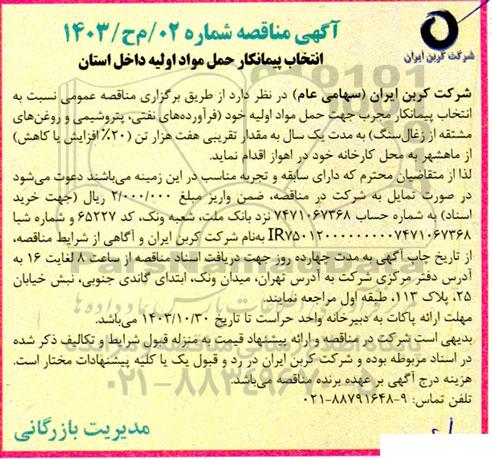 آگهی مناقصه شماره ۰۲/م‌ح/۱۴۰۳
شرکت کربن ایران
انتخاب پیمانکار حمل مواد اولیه داخل استان
شرکت کربن ایران (سهامی عام) در نظر دارد از طریق برگزاری مناقصه عمومی نسبت به
انتخاب پیمانکار مجرب جهت حمل مواد اولیه خود (فرآورده‌های نفتی، پتروشیمی و روغن‌های
مشتقه از زغال‌سنگ) به مدت یک سال به مقدار تقریبی هفت هزار تن (۲۰٪ افزایش یا کاهش)
از ماهشهر به محل کارخانه خود در اهواز اقدام نماید.
لذا از متقاضیان محترم که دارای سابقه و تجربه مناسب در این زمینه می‌باشند دعوت می‌شود
در صورت تمایل به شرکت در مناقصه، ضمن واریز مبلغ ۲/۰۰۰/۰۰۰ ریال (جهت خرید
اسناد) به شماره حساب ۷۴۷۱۰۶۷۳۶۸ نزد بانک ملت، شعبه ونک، کد ۶۵۲۲۷ و شماره شبا
IR۷۵۰۱۲۰۰۰۰۰۰۰۰۰۷۴۷۱۰۶۷۳۶۸ به‌نام شرکت کربن ایران و آگاهی از شرایط مناقصه،
از تاریخ چاپ آگهی به مدت چهارده روز جهت دریافت اسناد مناقصه از ساعت ۸ لغایت ۱۶ به
آدرس دفتر مرکزی شرکت به آدرس تهران، میدان ونک، ابتدای گاندی جنوبی، نبش خیابان
۲۵، پلاک ۱۱۳، طبقه اول مراجعه نمایند.
مهلت ارائه پاکات به دبیرخانه واحد حراست تا تاریخ ۱۴۰۳/۱۰/۳۰ می‌باشد.
بدیهی است شرکت در مناقصه و ارائه پیشنهاد قیمت به منزله قبول شرایط و تکالیف ذکر شده
در اسناد مربوطه بوده و شرکت کربن ایران در رد و قبول یک یا کلیه پیشنهادات مختار است.
هزینه درج آگهی بر عهده برنده مناقصه می‌باشد.
تلفن تماس: ۹-۸۸۷۹۱۶۴۸-۰۲۱
مدیریت بازرگانی